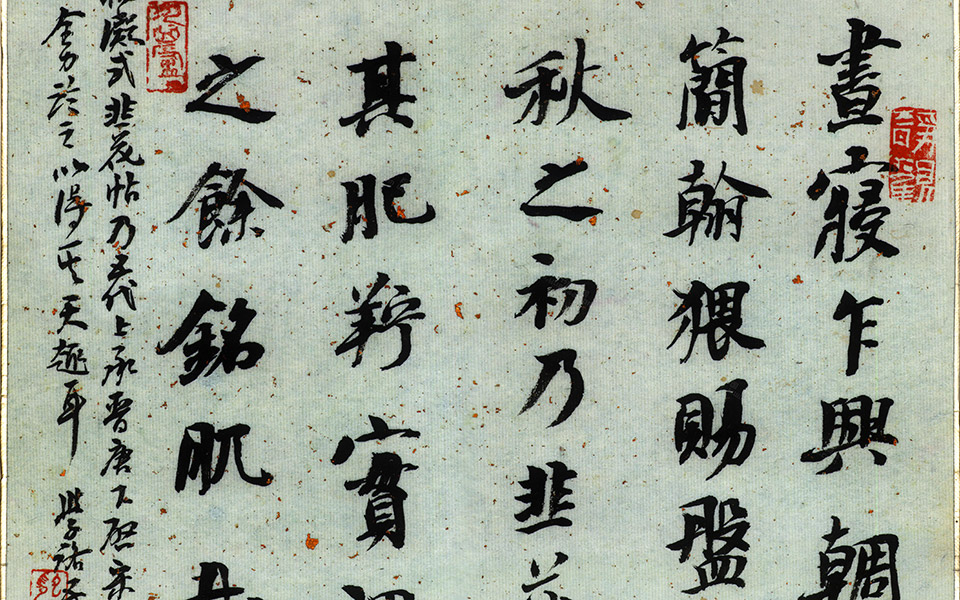 晝寢乍興輖
簡翰猥賜盤
秋之初乃韭
其肥羜實
之餘銘肌
凝式韭花帖乃五代上承晉唐下啓宋
之以得其天趣耳